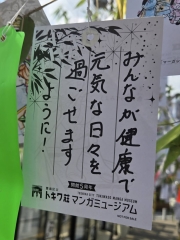 みんなが健康で
元気な日々を
過ごせます
ように!
開館5周年
トキワ荘マンガミュージアム